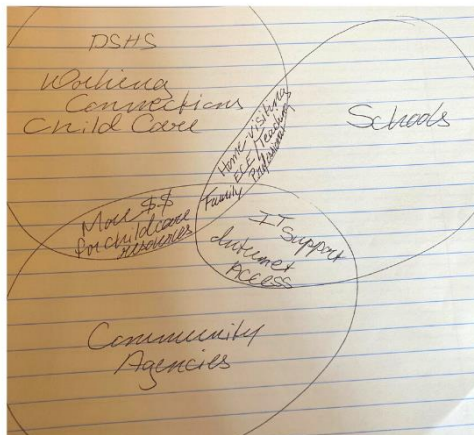 DSHS
Working
Connections
Child Care
Schools
Home-visiting
ECE/Teaching
Family Professional
More $$
for childcare
resources
IT Support
Internet
Access
Community
Agencies